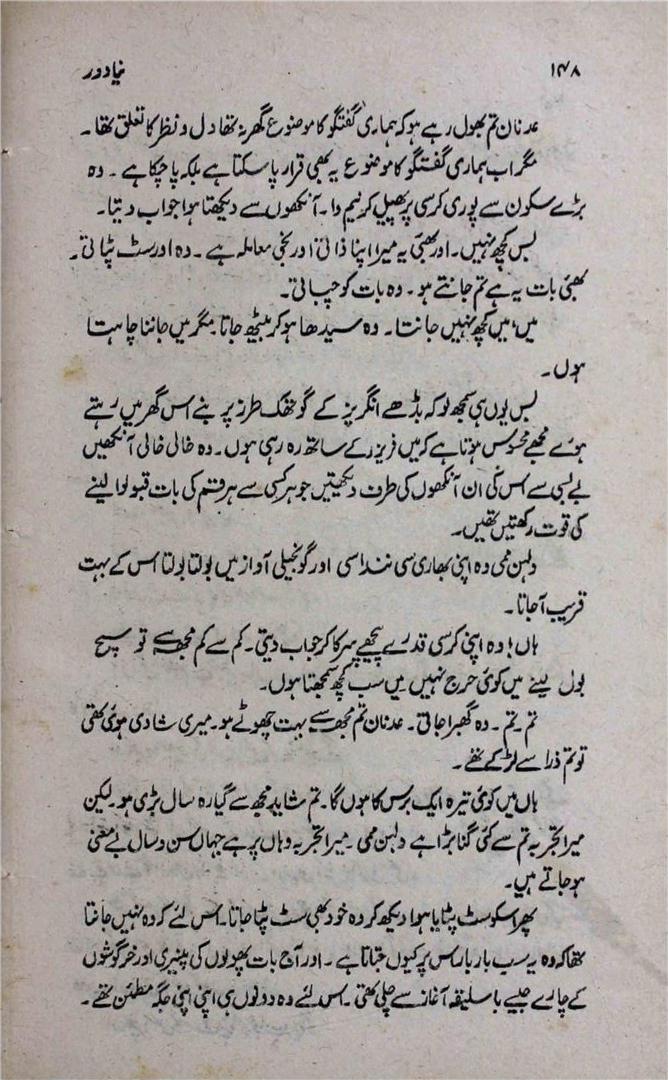 ۱۴۸ نیا دور
عدنان تم بھول رہے ہو کہ ہماری گفتگو کا موضوع گھر نہ تھا دل و نظر کا تعلق تھا۔
مگر اب ہماری گفتگو کا موضوع یہ بھی قرار پا سکتا ہے بلکہ پا چکا ہے۔ وہ
بڑے سکون سے پوری کرسی پر پھیل کر نیم وا۔ آنکھوں سے دیکھتا ہوا جواب دیتا۔
بس کچھ نہیں۔ اور بھئی یہ میرا اپنا ذاتی اور نجی معاملہ ہے۔ وہ اور سٹ پٹاتی۔
بھئی بات یہ ہے تم جانتے ہو۔ وہ بات کو چباتی۔
میں، میں کچھ نہیں جانتا۔ وہ سیدھا ہو کر بیٹھ جاتا۔ مگر میں جاننا چاہتا
ہوں۔
بس یوں ہی سمجھ لو کہ بڈھے انگریز کے گوتھک طرز پر بنے اس گھر میں رہتے
ہوئے مجھے محسوس ہوتا ہے کہ میں فریزر کے ساتھ رہ رہی ہوں۔ وہ خالی خالی آنکھیں
بے بسی سے اس کی ان آنکھوں کی طرف دیکھتیں جو ہر کسی سے ہر قسم کی بات قبولوا لینے
کی قوت رکھتیں تھیں۔
دلہن ممی وہ اپنی بھاری سی نندا سی اور گونجیلی آواز میں بولتا بولتا اس کے بہت
قریب آ جاتا۔
ہاں! وہ اپنی کرسی قدرے پیچھے سرکا کر جواب دیتی۔ کم سے کم مجھ سے تو سچ
بول لینے میں کوئی حرج نہیں میں سب کچھ سمجھتا ہوں۔
تم۔ تم۔ وہ گھبرا جاتی۔ عدنان تم مجھ سے بہت چھوٹے ہو۔ میری شادی ہوئی تھی
تو تم ذرا سے لڑکے تھے۔
ہاں میں کوئی تیرہ ایک برس کا ہوں گا۔ تم شاید مجھ سے گیارہ سال بڑی ہو۔ لیکن
میرا تجربہ تم سے کئی گنا بڑا ہے دلہن ممی۔ میرا تجربہ وہاں پر ہے جہاں سن و سال بے معنی
ہو جاتے ہیں۔
پھر اسکو سٹ پٹایا ہوا دیکھ کر وہ خود بھی سٹ پٹا جاتا۔ اس لئے کہ وہ نہیں جانتا
تھا کہ وہ یہ سب بار بار اس پر کیوں جتاتا ہے۔ اور آج بات پھولوں کی پنیری اور خرگوشوں
کے چارے جیسے با سلیقہ آغاز سے چلی تھی۔ اس لئے وہ دونوں ہی اپنی اپنی جگہ مطمئن تھے۔